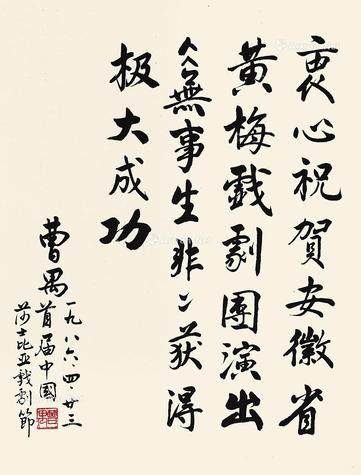 衷心祝賀安徽省
黄梅戲劇團演出
《無事生非》获得
极大成功
曹禺
一九八六·四·廿三
首届中國
莎士比亚戲劇節